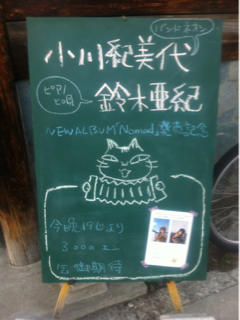 バンドネオン
小川紀美代
ピアノ
と唄
鈴木亜紀
NEW ALBUM「Nomad」発売記念
今晩19じより
3000エン
乞御期待